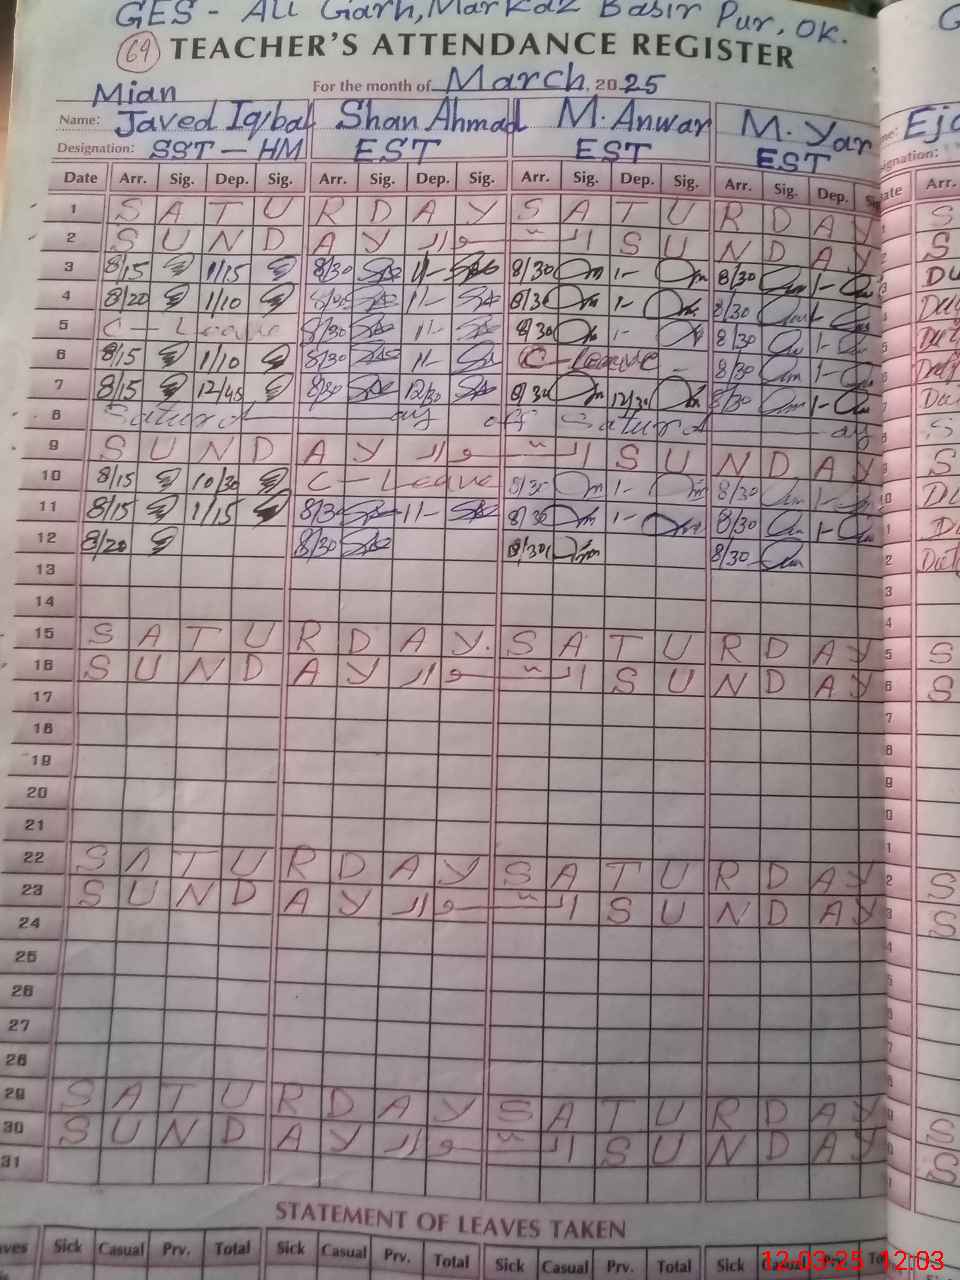 GES - ALi Garh, Markaz Basir Pur, OK.
69 TEACHER'S ATTENDANCE REGISTER
For the month of March, 2025
Mian
Name: Javed Iqbal Shan Ahmad M. Anwar M. Yar
Designation: SST - HM EST EST EST
Date Arr. Sig. Dep. Sig. Arr. Sig. Dep. Sig. Arr. Sig. Dep. Sig. Arr. Sig. Dep. Sig
1 SATURDAY SATURDAY
2 SUNDAY اتوار SUNDAY
3 8/15 1/15 8/30 1/- 8/30 1- 8/30 1-
4 8/20 1/10 1/- 8/30 1- 8/30 1-
5 C - Leave 8/30 1/- 8/30 1- 8/30 1-
6 8/15 1/10 8/30 1/- C - Leave 8/30 1-
7 8/15 12/45 8/30 12/30 8/30 12/30 8/30 1-
8 Saturday off Saturday
9 SUNDAY اتوار SUNDAY
10 8/15 10/30 C - Leave 8/30 1- 8/30 1-
11 8/15 1/15 8/30 1/- 8/30 1- 8/30 1-
12 8/20 8/30 8/30 8/30
13
14
15 SATURDAY. SATURDAY
16 SUNDAY اتوار SUNDAY
17
18
19
20
21
22 SATURDAY SATURDAY
23 SUNDAY اتوار SUNDAY
24
25
26
27
28
29 SATURDAY SATURDAY
30 SUNDAY اتوار SUNDAY
31
STATEMENT OF LEAVES TAKEN
Sick Casual Prv. Total Sick Casual Prv. Total Sick Casual Prv. Total Sick Casual Prv.
12-03-25 12:03